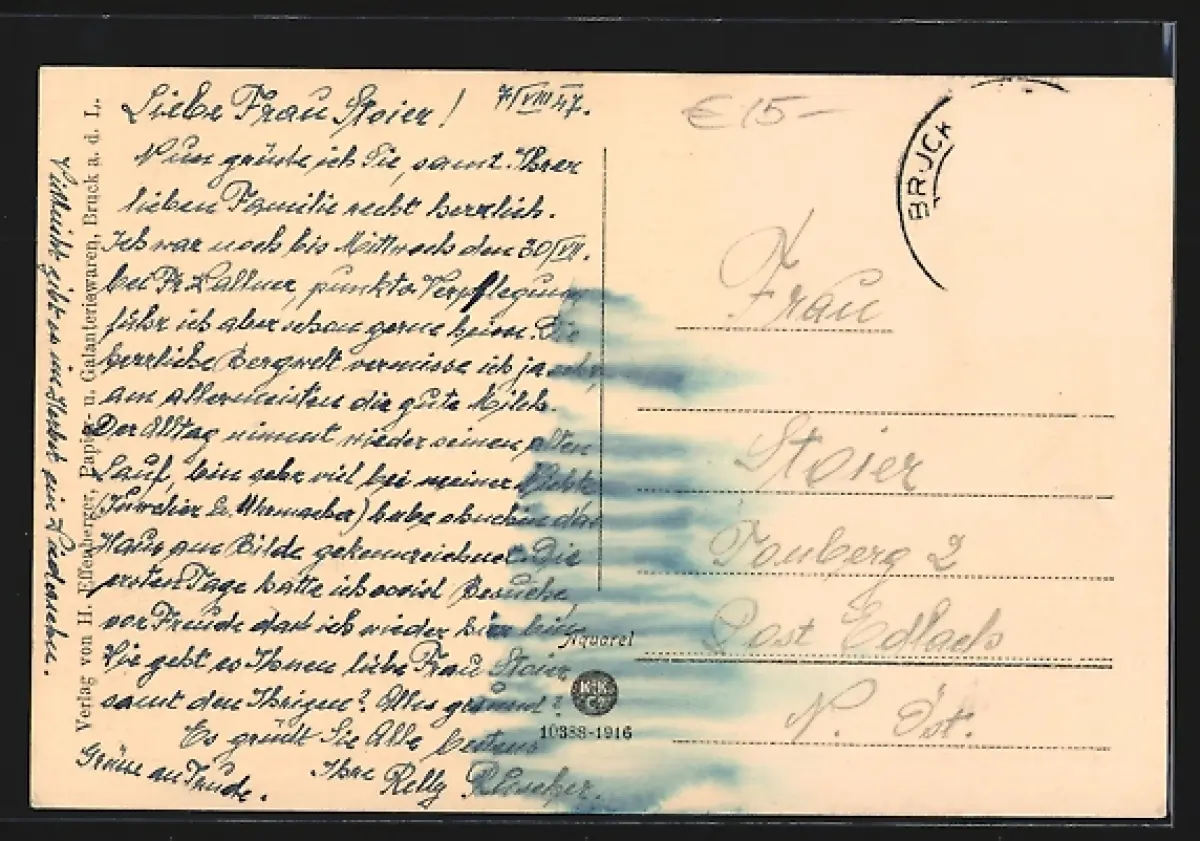 Liebe Frau Stoier! 7/VIII 47.
Nun grüße ich Sie, samt Ihrer
lieben Familie recht herzlich.
Ich war noch bis Mittwoch den 30/VII.
bei Fr. Lallner, punkto Verpflegung
fuhr ich aber schon gerne heim. Die
herrliche Bergwelt vermisse ich ja sehr,
am allermeisten die gute Milch.
Der Alltag nimmt wieder seinen alten
Lauf, bin sehr viel bei meiner Nichte
(Juwelier u. Uhrmacher) habe ohnehin das
Haus am Bilde gekennzeichnet. Die
ersten Tage hatte ich soviel Besuche,
vor Freude daß ich wieder hier bin.
Wie geht es Ihnen liebe Frau Stoier
samt den Ihrigen? Alles gesund?
Es grüßt Sie Alle bestens
Ihre Relly
Grüße an Trude.
Vielleicht gibt es im Herbst ein Wiedersehen.
Verlag von H. Effenberger, Papier- u. Galanteriewaren, Bruck a. d. L.
Aquarel
K.K.
Co
10388-1916
€ 15-
BRUCK
Frau
Stoier
Post Edlach
N. Öst.